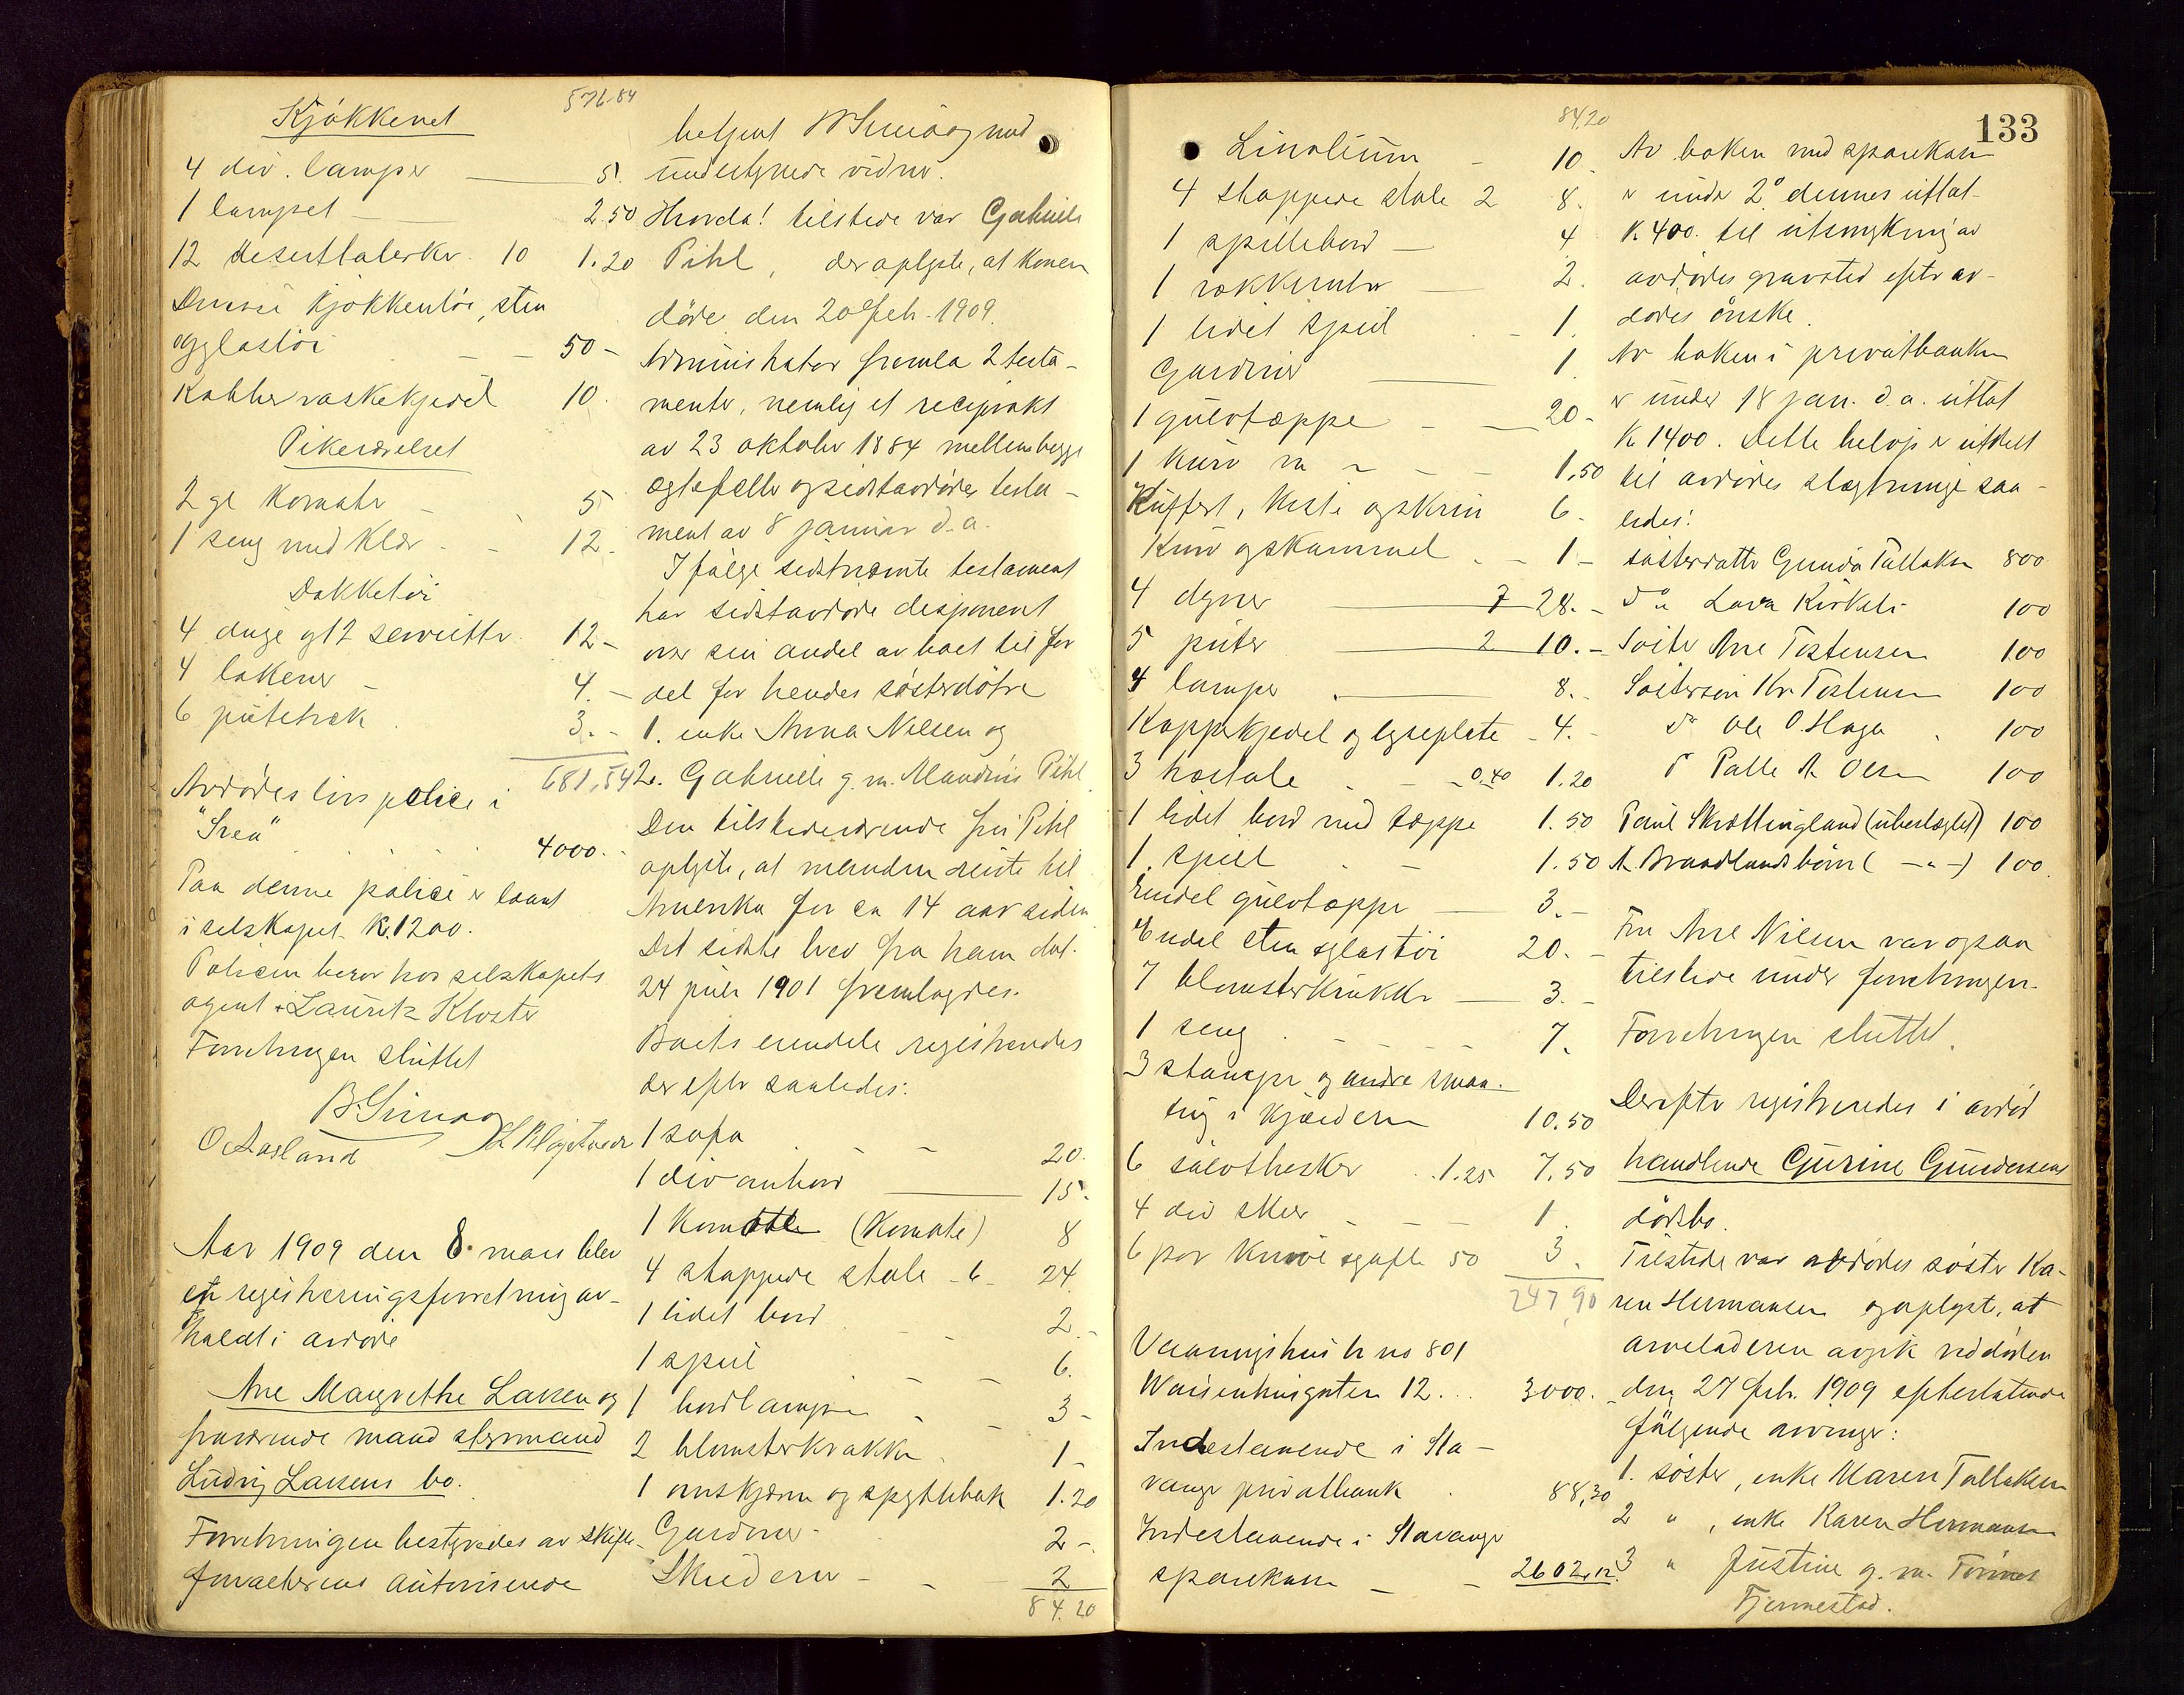 576.84
Kjøkkenet
4 div. lamper 5.
1 lampet 2.50
12 desserttalerkr. 10 1.20
Diverse kjøkkentøi, sten
og glastøi 50 -
Kobber vaskekjedel 10.
Pikeværelset
2 gl komoder 5
1 seng med klær 12.
Dækketøi
4 duge og 12 servietter 12 -
4 lakener 4. -
6 putetræk 3. -
681,54
Avdødes livspolice i
"Irea" 4000. -
Paa denne police er laant
i selskapet K. 1200.
Policen beror hos selskapets
agent Lauritz Kloster
Forretningen sluttet
B. Simaa
O. Aasland
Aar 1909 den 8. mars blev
en registreringsforretning av-
holdt i avdøde
Ane Margrethe Larsen og
fraværende mand styrmand
Ludvig Larsens bo.
Forretningen bestyredes av skifte-
forvalterens autoriserede
betjent B Simaa og med
undertegnede vidner.
Hvorda! tilstede var Gabrielle
Pihl, der oplyste, at konen
døde den 20 feb. 1909.
Administrator fremla 2 testa-
menter, nemlig et reciprokt
av 23 oktober 1884 mellem begge
ægtefeller og sidstavdødes testa-
ment av 8 januar d.a.
I følge sidstnævnte testament
har sidstavdøde disponert
over sin andel av boet til for
del for hendes søsterdøtre
1. enke Anna Nilsen og
2. Gabrielle g. m. Mandrus Pihl
Den tilstedeværende fru Pihl
oplyste, at manden reiste til
Amerika for ca 14 aar siden
Det sidste brev fra ham dat.
24 juli 1901 fremlagdes.
Boets eiendele registrertes
der efter saaledes:
1 sofa 20.
1 divanbord 15.
1 komode (Komode) 8
4 stoppede stole - 6 - 24.
1 lidet bord 2. -
1 speil 6.
1 bordlampe 3 -
2 blomsterkrukker 1 -
1 ovnskjærm og spyttebak 1.20
Gardiner 2 -
Skilderier 2
84.20
133
84,20
Linolium 10.
4 stoppede stole 2 8.
1 spillebord 4
1 rokkeruter 2.
1 lidet speil 1.
Gardiner 1.
1 gulvtæppe 20 -
1 kurv m 1,50
Kuffert, kiste og skrin 6 -
Kurv og skammel 1 -
4 dyner 7 28. -
5 puter 2 10. -
4 lamper 8. -
Kopperkjedel og lyseplate 4. -
3 træstole 0,40 1.20
1 lidet bord med tæppe 1.50
1 speil 1.50
Endel gulvtæpper 3. -
Endel sten og glastøi 20. -
7 blomsterkrukker 3. -
1 seng 7.
3 stamper og andre smaa-
ting i kjælderen 10.50
6 sølvtheskeer 1.25 7.50
4 div skeer 1.
6 par knive og gafler 50 3.
247,90
Vaaningshus br no 801
Waisenhusgaten 12... 3000. -
Indestaaende i Sta-
vanger privatbank 88,30
Indestaaende i Stavanger
sparekasse 2602,12.
Av boken med sparekassen
er under 2de dennes uttat
K. 400. til utsmykning av
avdødes gravsted efter av-
dødes ønske.
Av boken i privatbanken
er under 18 jan. d. a. uttat
K. 1400. Dette beløp er utdelt
til avdødes slægtninge saa-
ledes:
søsterdatter Gunda Tallaksen 800
do Lava Kirkeli 100
Søster Ane Tostensen 100
Søstersøn Kr. Tostensen 100
do Ole O. Haga 100
do Palle A. Olsen 100
Paul Skrættingland (ubeslægtet) 100
A. Braadlands børn ( -"- ) 100.
Fru Ane Nilsen var ogsaa
tilstede under forretningen.
Forretningen sluttet.
Derefter registreredes i avdød
handlende Gurine Gundersens
dødsbo.
Tilstede var avdødes søster Ka-
ren Hermansen og oplyste, at
arveladeren avgik ved døden
den 27 feb. 1909 efterlatende
følgende arvinger:
1. søster, enke Maren Tallaksen
2 " , enke Karen Hermansen
3 " Justine g. m. Tønnes
Fjermestad.